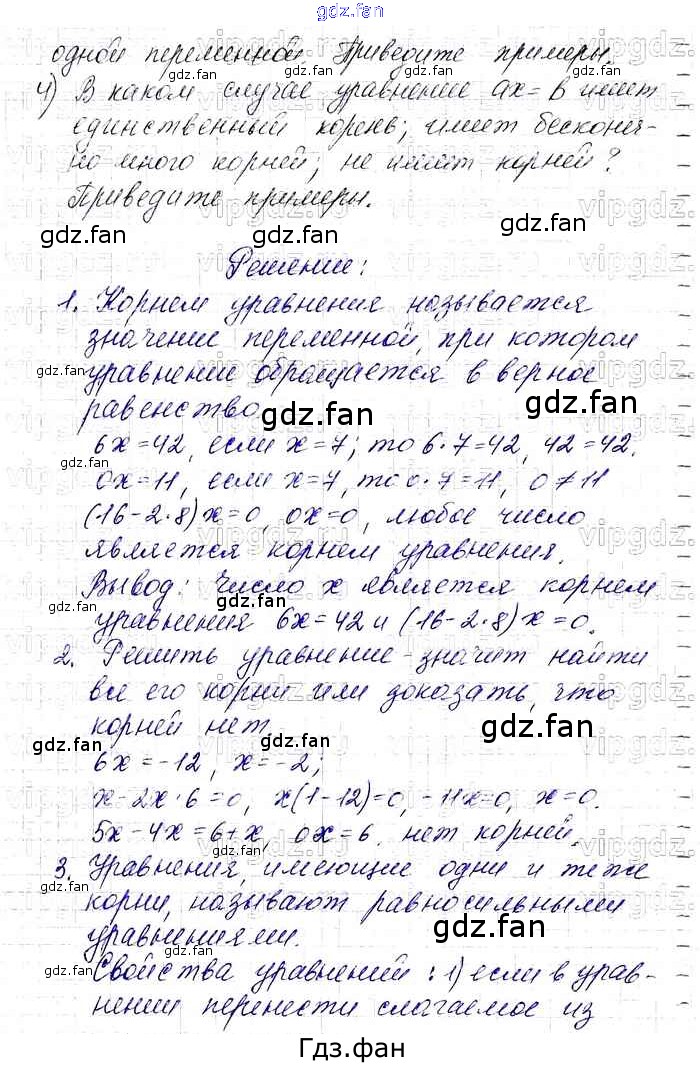 gdz.fan
одной переменной. Приведите примеры.
4) В каком случае уравнение ax = b имеет
единственный корень; имеет бесконеч-
но много корней; не имеет корней?
Приведите примеры.
Решение:
1. Корнем уравнения называется
значение переменной, при котором
уравнение обращается в верное
равенство.
6x = 42, если x = 7; то 6·7 = 42, 42 = 42.
0x = 11, если x = 7, то 0·7 = 11, 0 ≠ 11
(16 - 2·8)x = 0, 0x = 0, любое число
является корнем уравнения.
Вывод: число x является корнем
уравнения 6x = 42 и (16 - 2·8)x = 0.
2. Решить уравнение - значит найти
все его корни или доказать, что
корней нет.
6x = -12, x = -2;
x - 2x·6 = 0, x(1 - 12) = 0, -11x = 0, x = 0.
5x - 4x = 6 + x, 0x = 6. нет корней.
3. Уравнения, имеющие одни и те же
корни, называют равносильными
уравнениями.
Свойства уравнений: 1) если в урав-
нении перенести слагаемое из
Гдз.фан